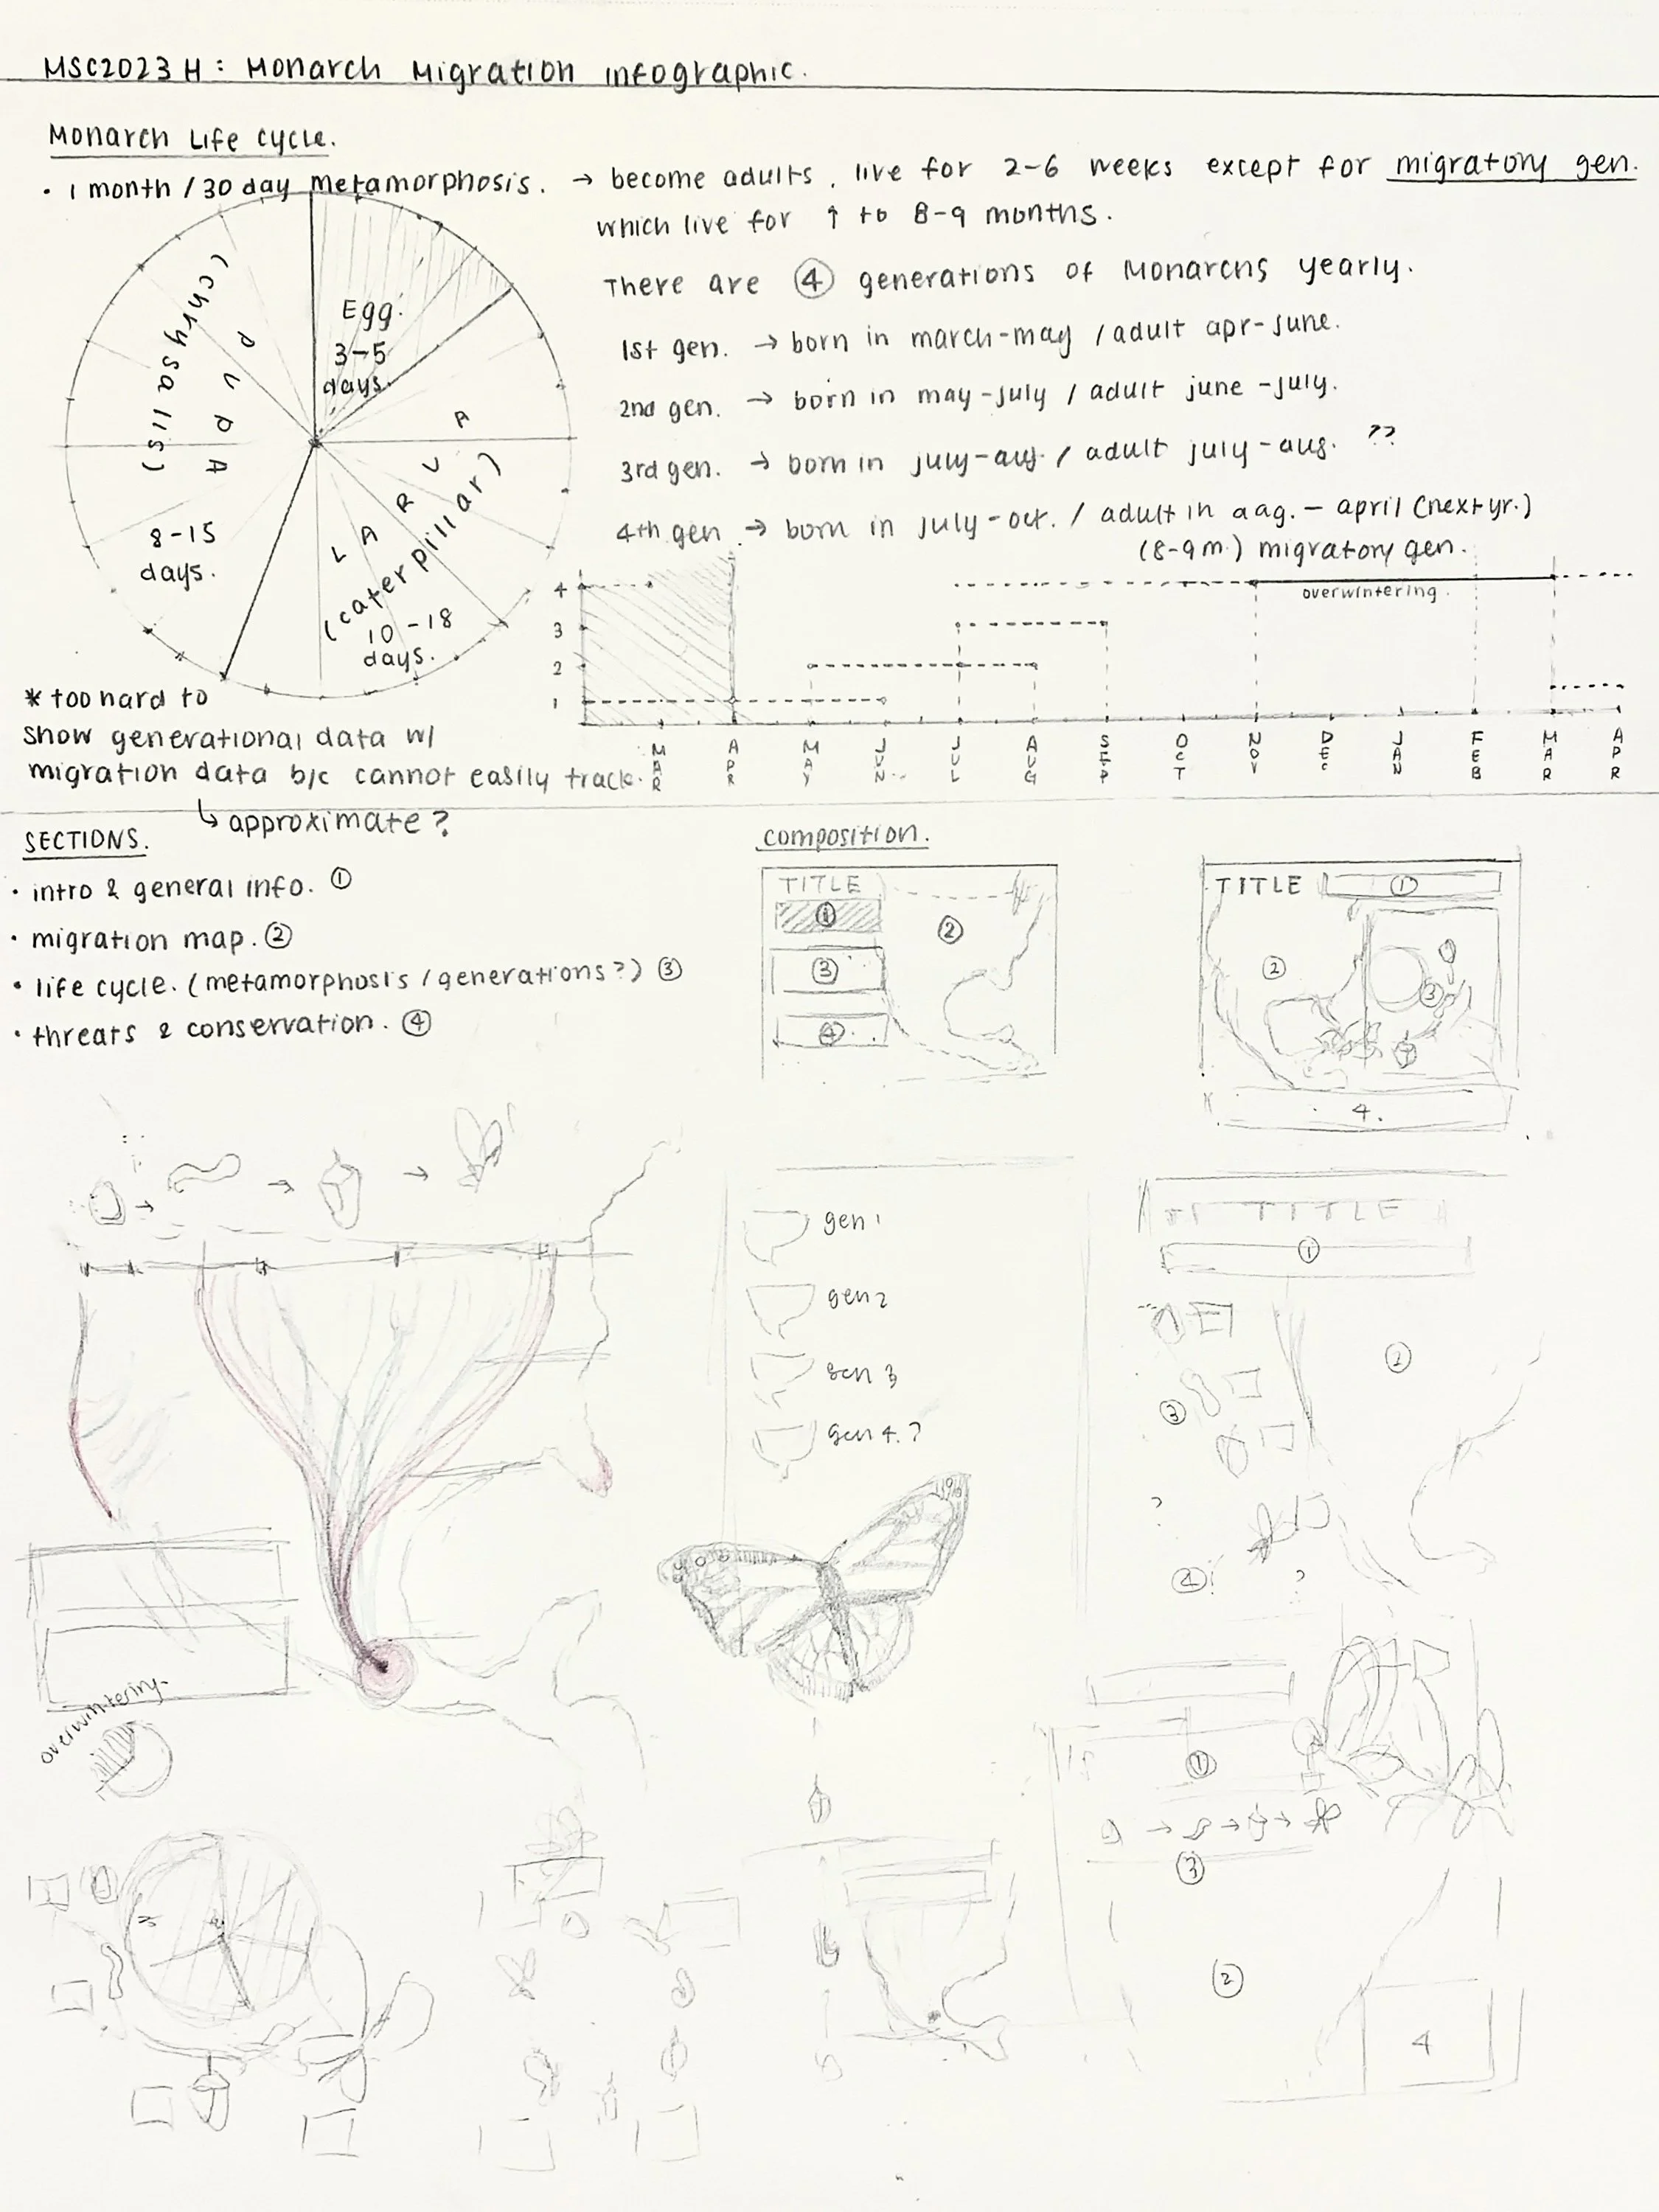 MSC2023H: Monarch Migration infographic.
Monarch Life cycle.
• 1 month / 30 day metamorphosis. → become adults, live for 2-6 weeks except for migratory gen.
which live for ↑ to 8-9 months.
There are ④ generations of Monarchs yearly.
1st gen. → born in march-may / adult apr-june.
2nd gen. → born in may-july / adult june-july.
3rd gen. → born in july-aug. / adult july-aug. ??
4th gen → born in july-oct. / adult in aug. - april (next yr.)
(8-9m.) migratory gen.
Egg
3-5
days.
LARVA
(caterpillar)
10-18
days.
PUPA
(chrysalis)
8-15
days.
4
3
2
1
overwintering.
MAR APR MAY JUN JUL AUG SEP OCT NOV DEC JAN FEB MAR APR
* too hard to
show generational data w/
migration data b/c cannot easily track.
↳ approximate?
SECTIONS.
• intro & general info. ①
• migration map. ②
• life cycle. (metamorphosis / generations?) ③
• threats & conservation. ④
composition.
TITLE
①
②
③
④
TITLE ①
②
③
4.
gen 1
gen 2
gen 3
gen 4.?
TITLE
①
②
③
?
④?
?
overwintering.
①
③
②
4